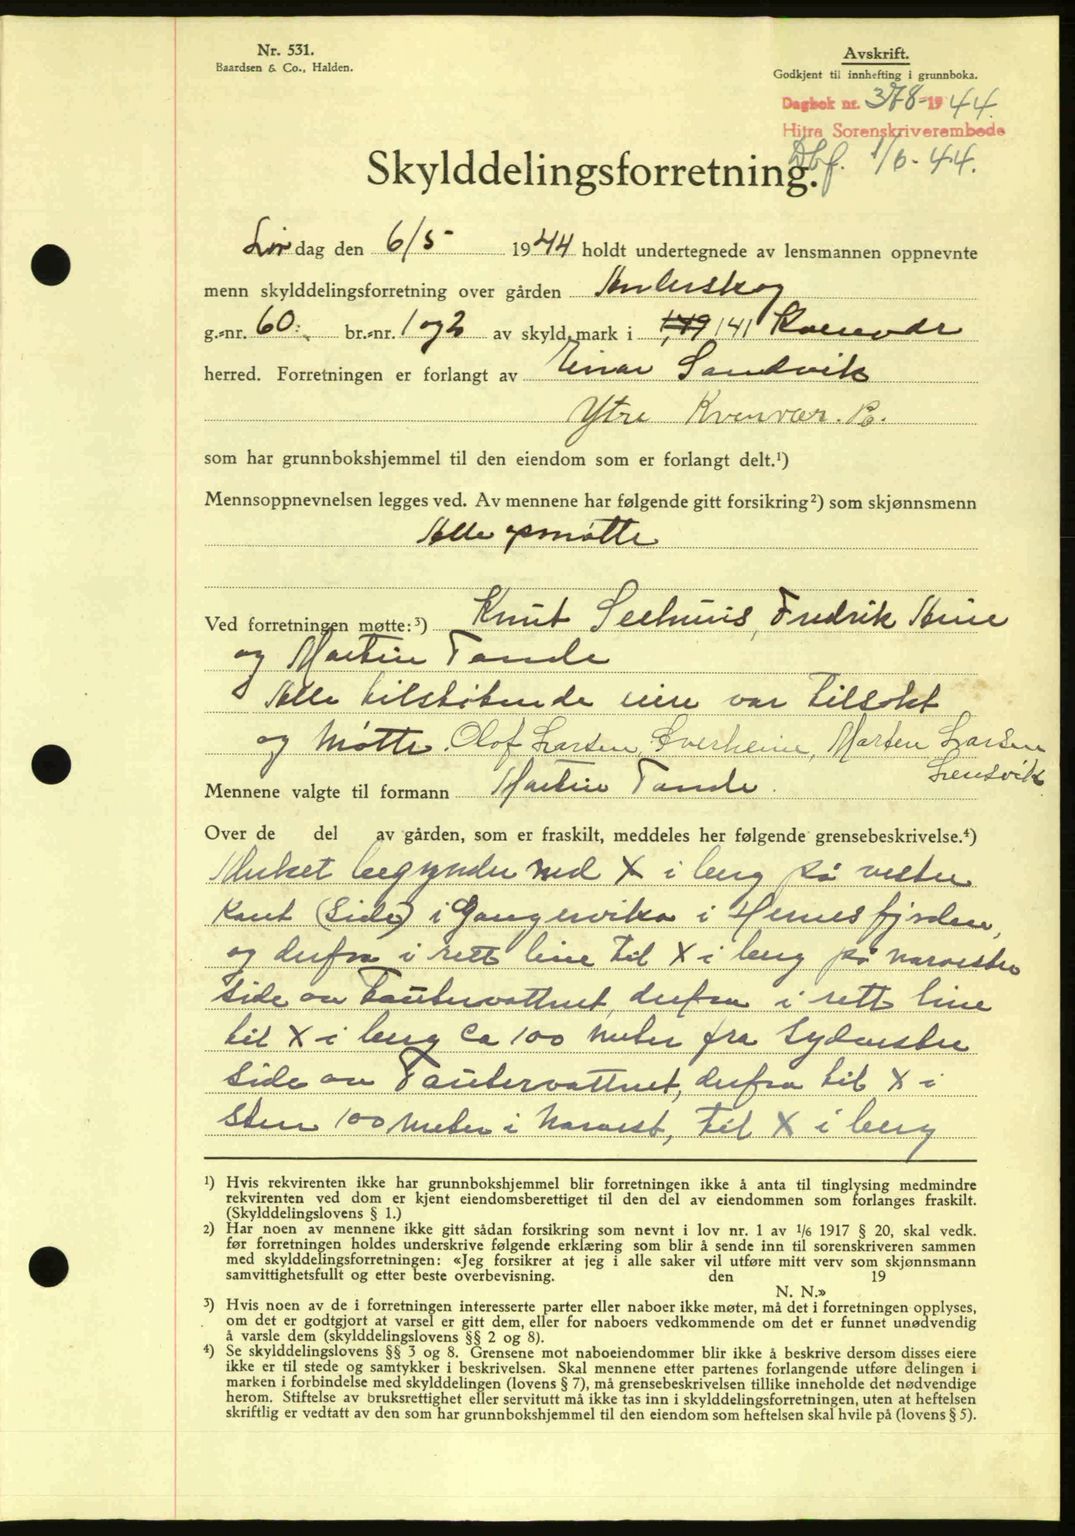 Nr. 531.
Baardsen & Co., Halden.
Avskrift.
Godkjent til innhefting i grunnboka.
Dagbok nr. 378-1944.
Hitra Sorenskriverembede
Dbf. 1/6-44.
Skylddelingsforretning.
Lørdag den 6/5- 1944 holdt undertegnede av lensmannen oppnevnte
menn skylddelingsforretning over gården
g.-nr. 60. br.-nr. 1 og 2 av skyld mark i 1,49 141 Kvenvær
herred. Forretningen er forlangt av Einar Sandvik
Ytre Kvenvær. P.
som har grunnbokshjemmel til den eiendom som er forlangt delt.¹)
Mennsoppnevnelsen legges ved. Av mennene har følgende gitt forsikring²) som skjønnsmenn
Alle opmøtte
Ved forretningen møtte:³) Knut Seehuus, Fredrik Aune
og Martin Tande
Alle tilstøtende eiere var tilsakt
og møtte. Olof Larsen, Marten Larsen
Lensvik
Mennene valgte til formann Martin Tande.
Over de del av gården, som er fraskilt, meddeles her følgende grensebeskrivelse.⁴)
Merket begynder med X i berg på vestre
kant (Side) i Gangervika i Hernesfjorden,
og derfra i rett line til X i berg på narvestre
side av Tautervattnet, derfra i rett line
til X i berg ca 100 meter fra Sydvestre
side av Tautervattnet, derfra til X i
sten 100 meter i Narvest, til X i berg
¹) Hvis rekvirenten ikke har grunnbokshjemmel blir forretningen ikke å anta til tinglysing medmindre
rekvirenten ved dom er kjent eiendomsberettiget til den del av eiendommen som forlanges fraskilt.
(Skylddelingslovens § 1.)
²) Har noen av mennene ikke gitt sådan forsikring som nevnt i lov nr. 1 av 1/6 1917 § 20, skal vedk.
før forretningen holdes underskrive følgende erklæring som blir å sende inn til sorenskriveren sammen
med skylddelingsforretningen: «Jeg forsikrer at jeg i alle saker vil utføre mitt verv som skjønnsmann
samvittighetsfullt og etter beste overbevisning. den 19
N. N.»
³) Hvis noen av de i forretningen interesserte parter eller naboer ikke møter, må det i forretningen opplyses,
om det er godtgjort at varsel er gitt dem, eller for naboers vedkommende om det er funnet unødvendig
å varsle dem (skylddelingslovens §§ 2 og 8).
⁴) Se skylddelingslovens §§ 3 og 8. Grensene mot naboeiendommer blir ikke å beskrive dersom disses eiere
ikke er til stede og samtykker i beskrivelsen. Skal mennene etter partenes forlangende utføre delingen i
marken i forbindelse med skylddelingen (lovens § 7), må grensebeskrivelsen tillike inneholde det nødvendige
herom. Stiftelse av bruksrettighet eller servitutt må ikke tas inn i skylddelingsforretningen, uten at heftelsen
skriftlig er vedtatt av den som har grunnbokshjemmel til den eiendom som heftelsen skal hvile på (lovens § 5).